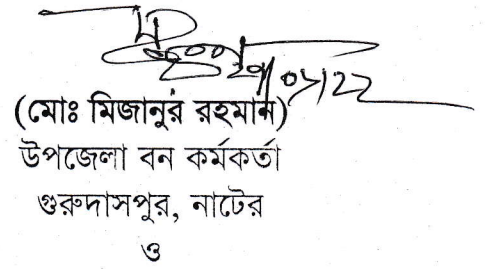 (মোঃ মিজানুর রহমান)
উপজেলা বন কর্মকর্তা
গুরুদাসপুর, নাটের
ও